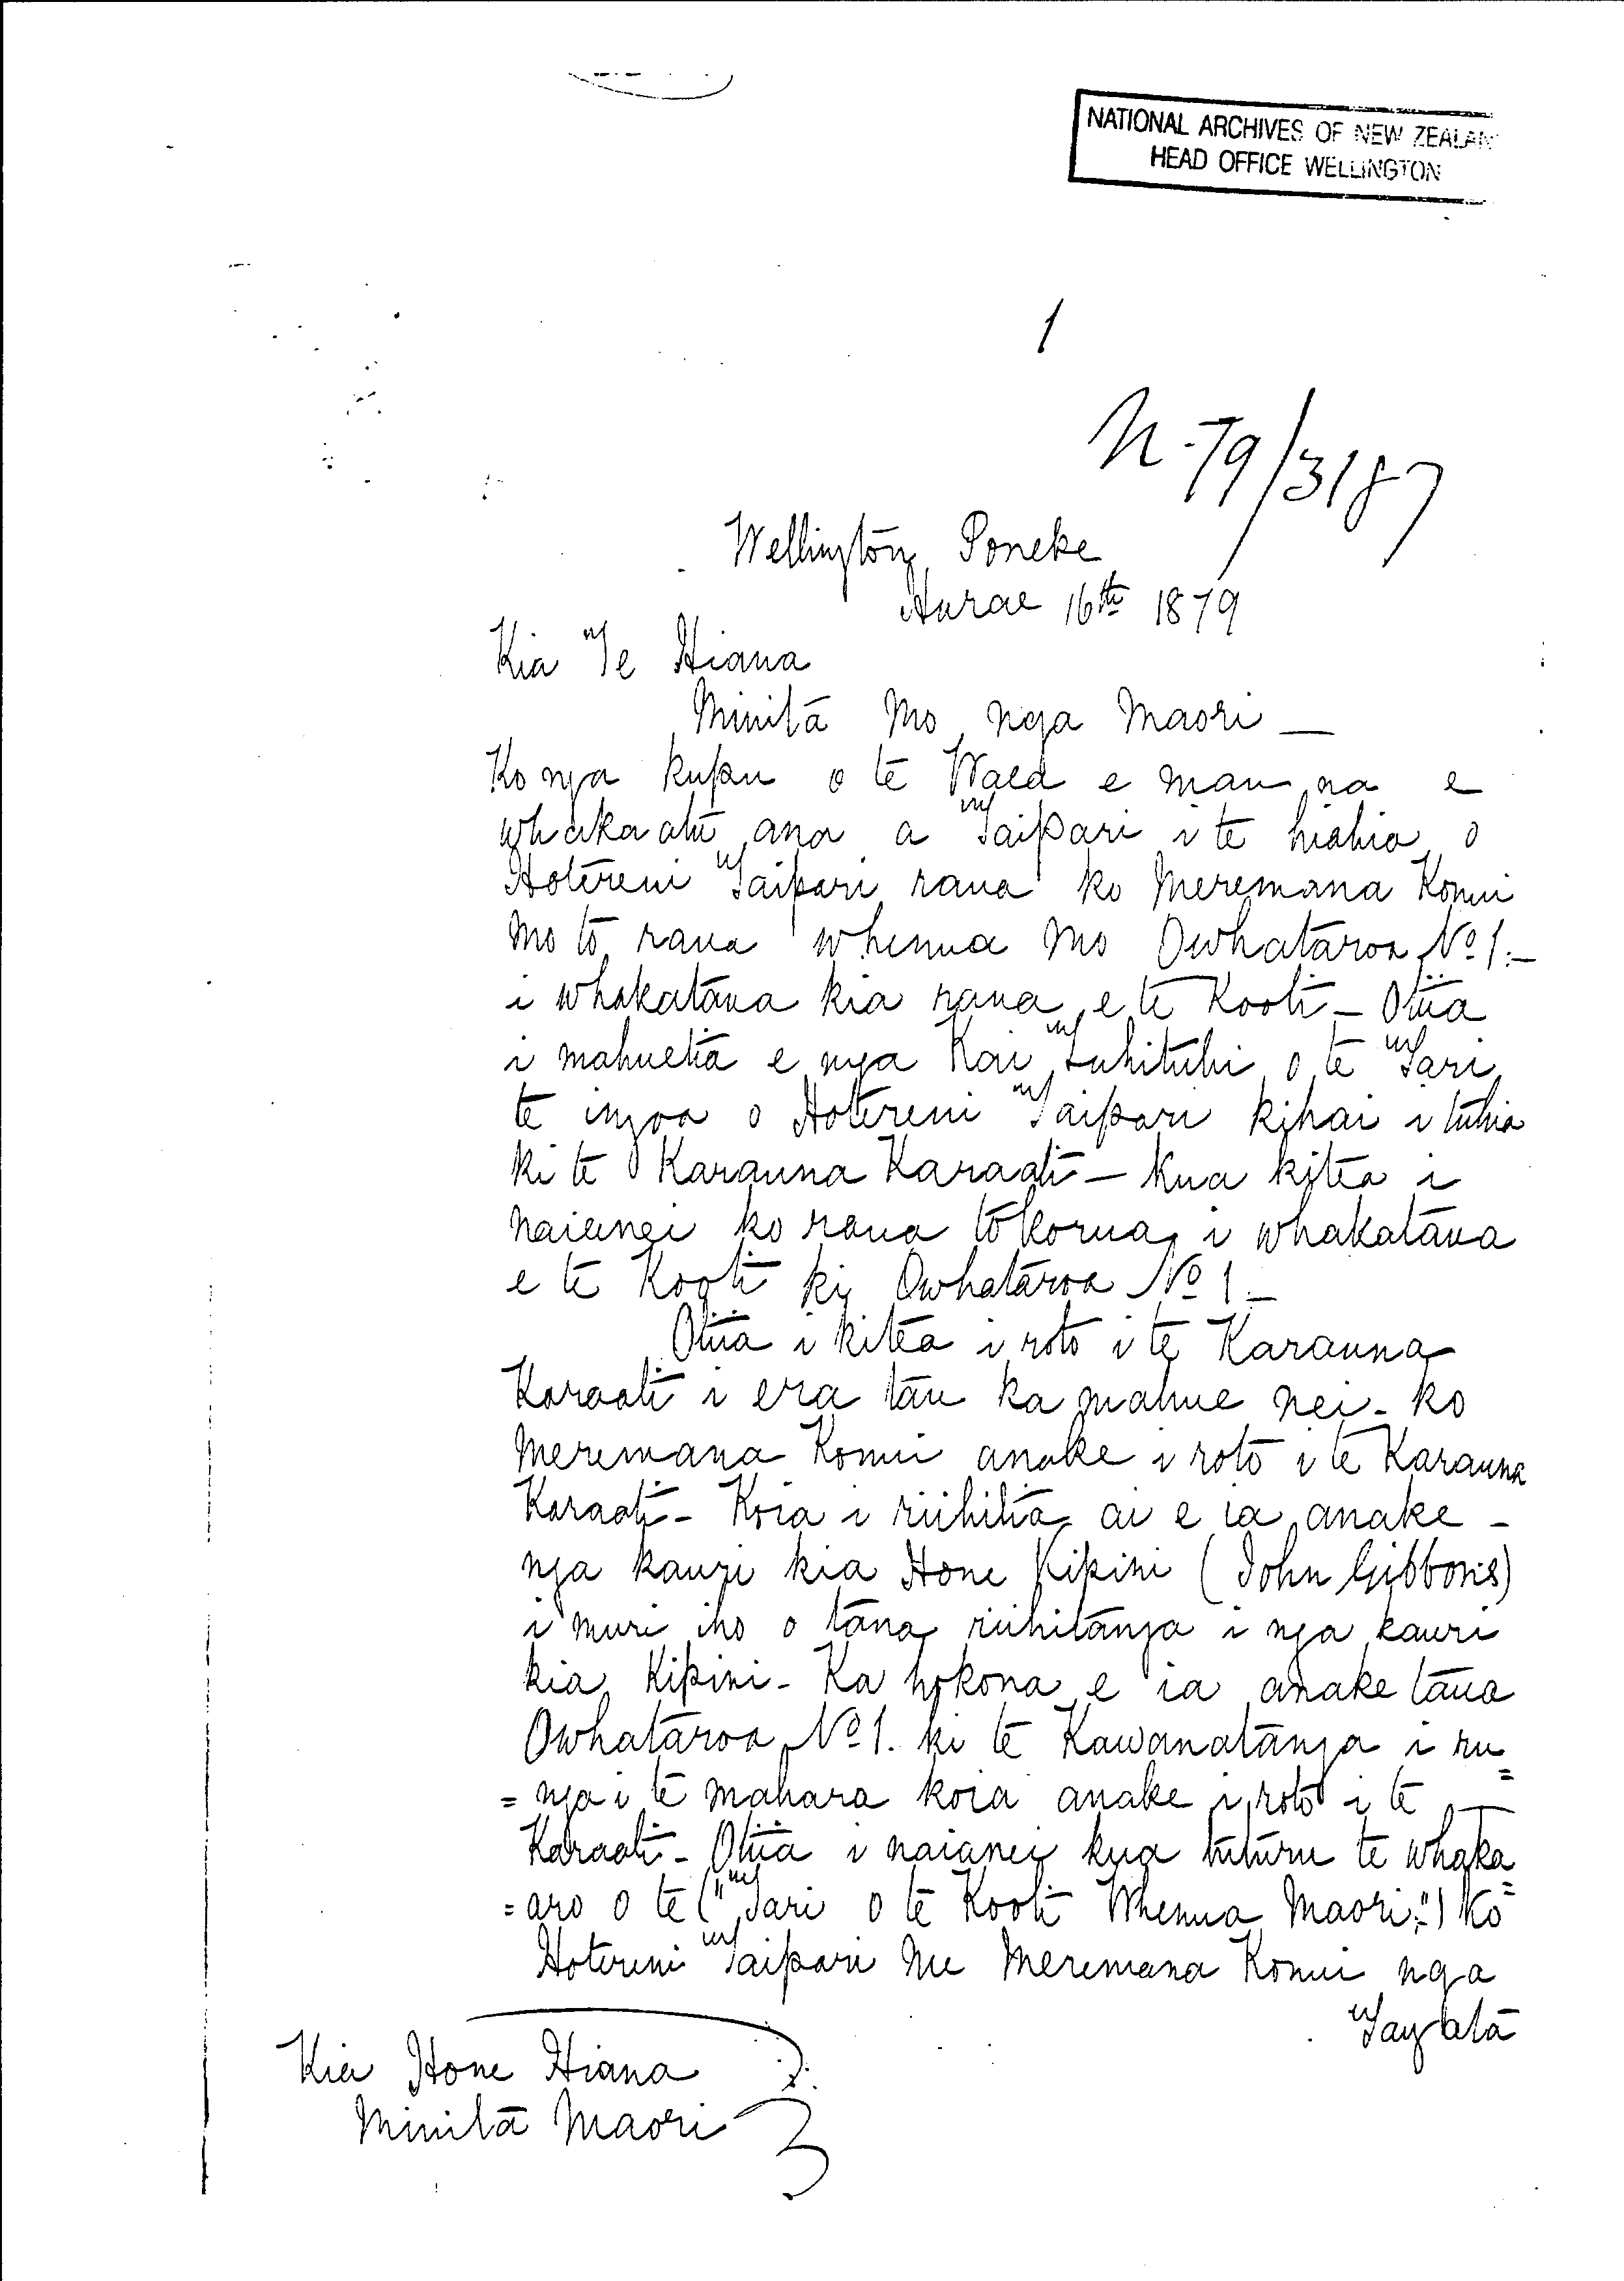 NATIONAL ARCHIVES OF NEW ZEALAN
HEAD OFFICE WELLINGTON
1
N-79/3187
Wellington, Poneke
Hurae 16th 1879
Kia Te Hiana
Minita Mo nga Maori —
Ko nga kupu o te Waea e mau na e
whakaatu ana a Taipari i te hiahia o
Hotereni Taipari raua ko Meremana Konui
mo to raua whenua mo Owhataroa No 1.—
i whakataua kia raua e te Kooti — Otiia
i mahuetia e nga Kai Tuhituhi o te Tari
te ingoa o Hotereni Taipari kihai i tuhia
ki te Karauna Karaati — Kua kitea i
naianei ko raua tokorua i whakataua
e te Kooti ki Owhataroa No 1 —
Otiia i kitea i roto i te Karauna
Karaati i era tau ka mahue nei - ko
Meremana Konui anake i roto i te Karauna
Karaati - Koia i riihitia ai e ia anake —
nga kauri kia Hone Kipini (John Gibbons)
i muri iho o tana riihitanga i nga kauri
kia Kipini - Ka hokona e ia anake taua
Owhataroa No 1. ki te Kawanatanga i ru=
=nga i te mahara koia anake i roto i te —
Karaati - Otiia i naianei kua tuturu te whaka=
=aro o te ("Tari o te Kooti Whenua Maori:") Ko
Hotereni Taipari me Meremana Konui nga
Tangata
Kia Hone Hiana
Minita Maori